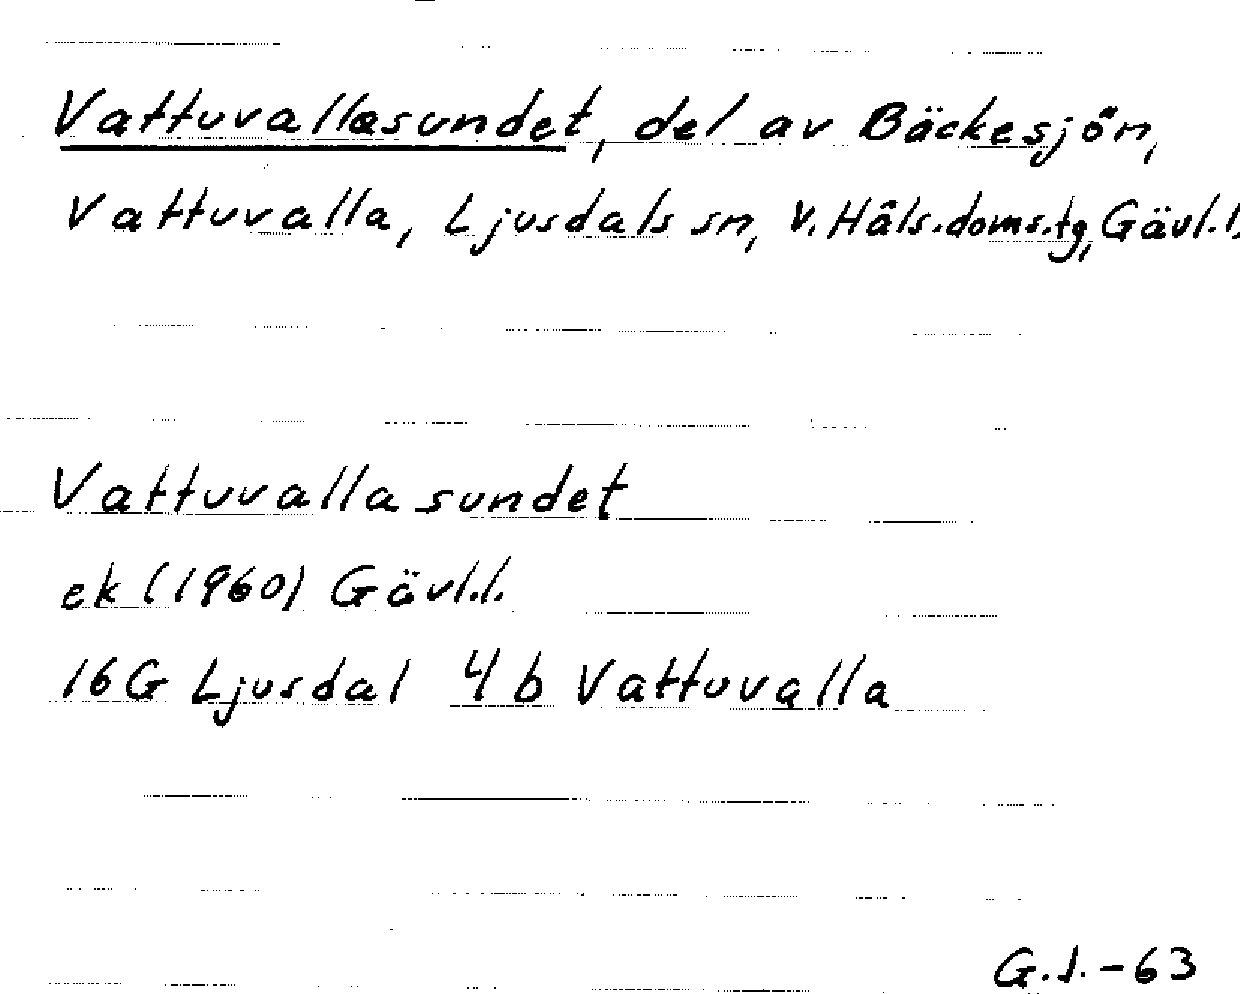 Vattuvallasundet, del av Bäckesjön,
Vattuvalla, Ljusdals sn, V. Häls. doms. tg, Gävl. l.
Vattuvallasundet
ek (1960) Gävl. l.
16G Ljusdal 4b Vattuvalla
G. J. - 63